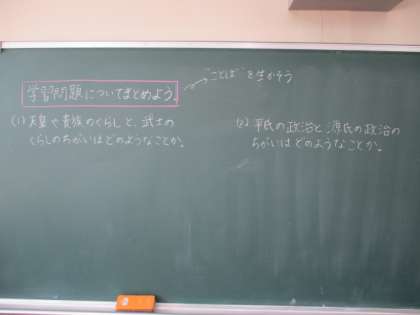 学習問題についてまとめよう。
"ことば"を生かそう
(1) 天皇や貴族のくらしと、武士の
くらしのちがいはどのようなことか。
(2) 平氏の政治と源氏の政治の
ちがいはどのようなことか。